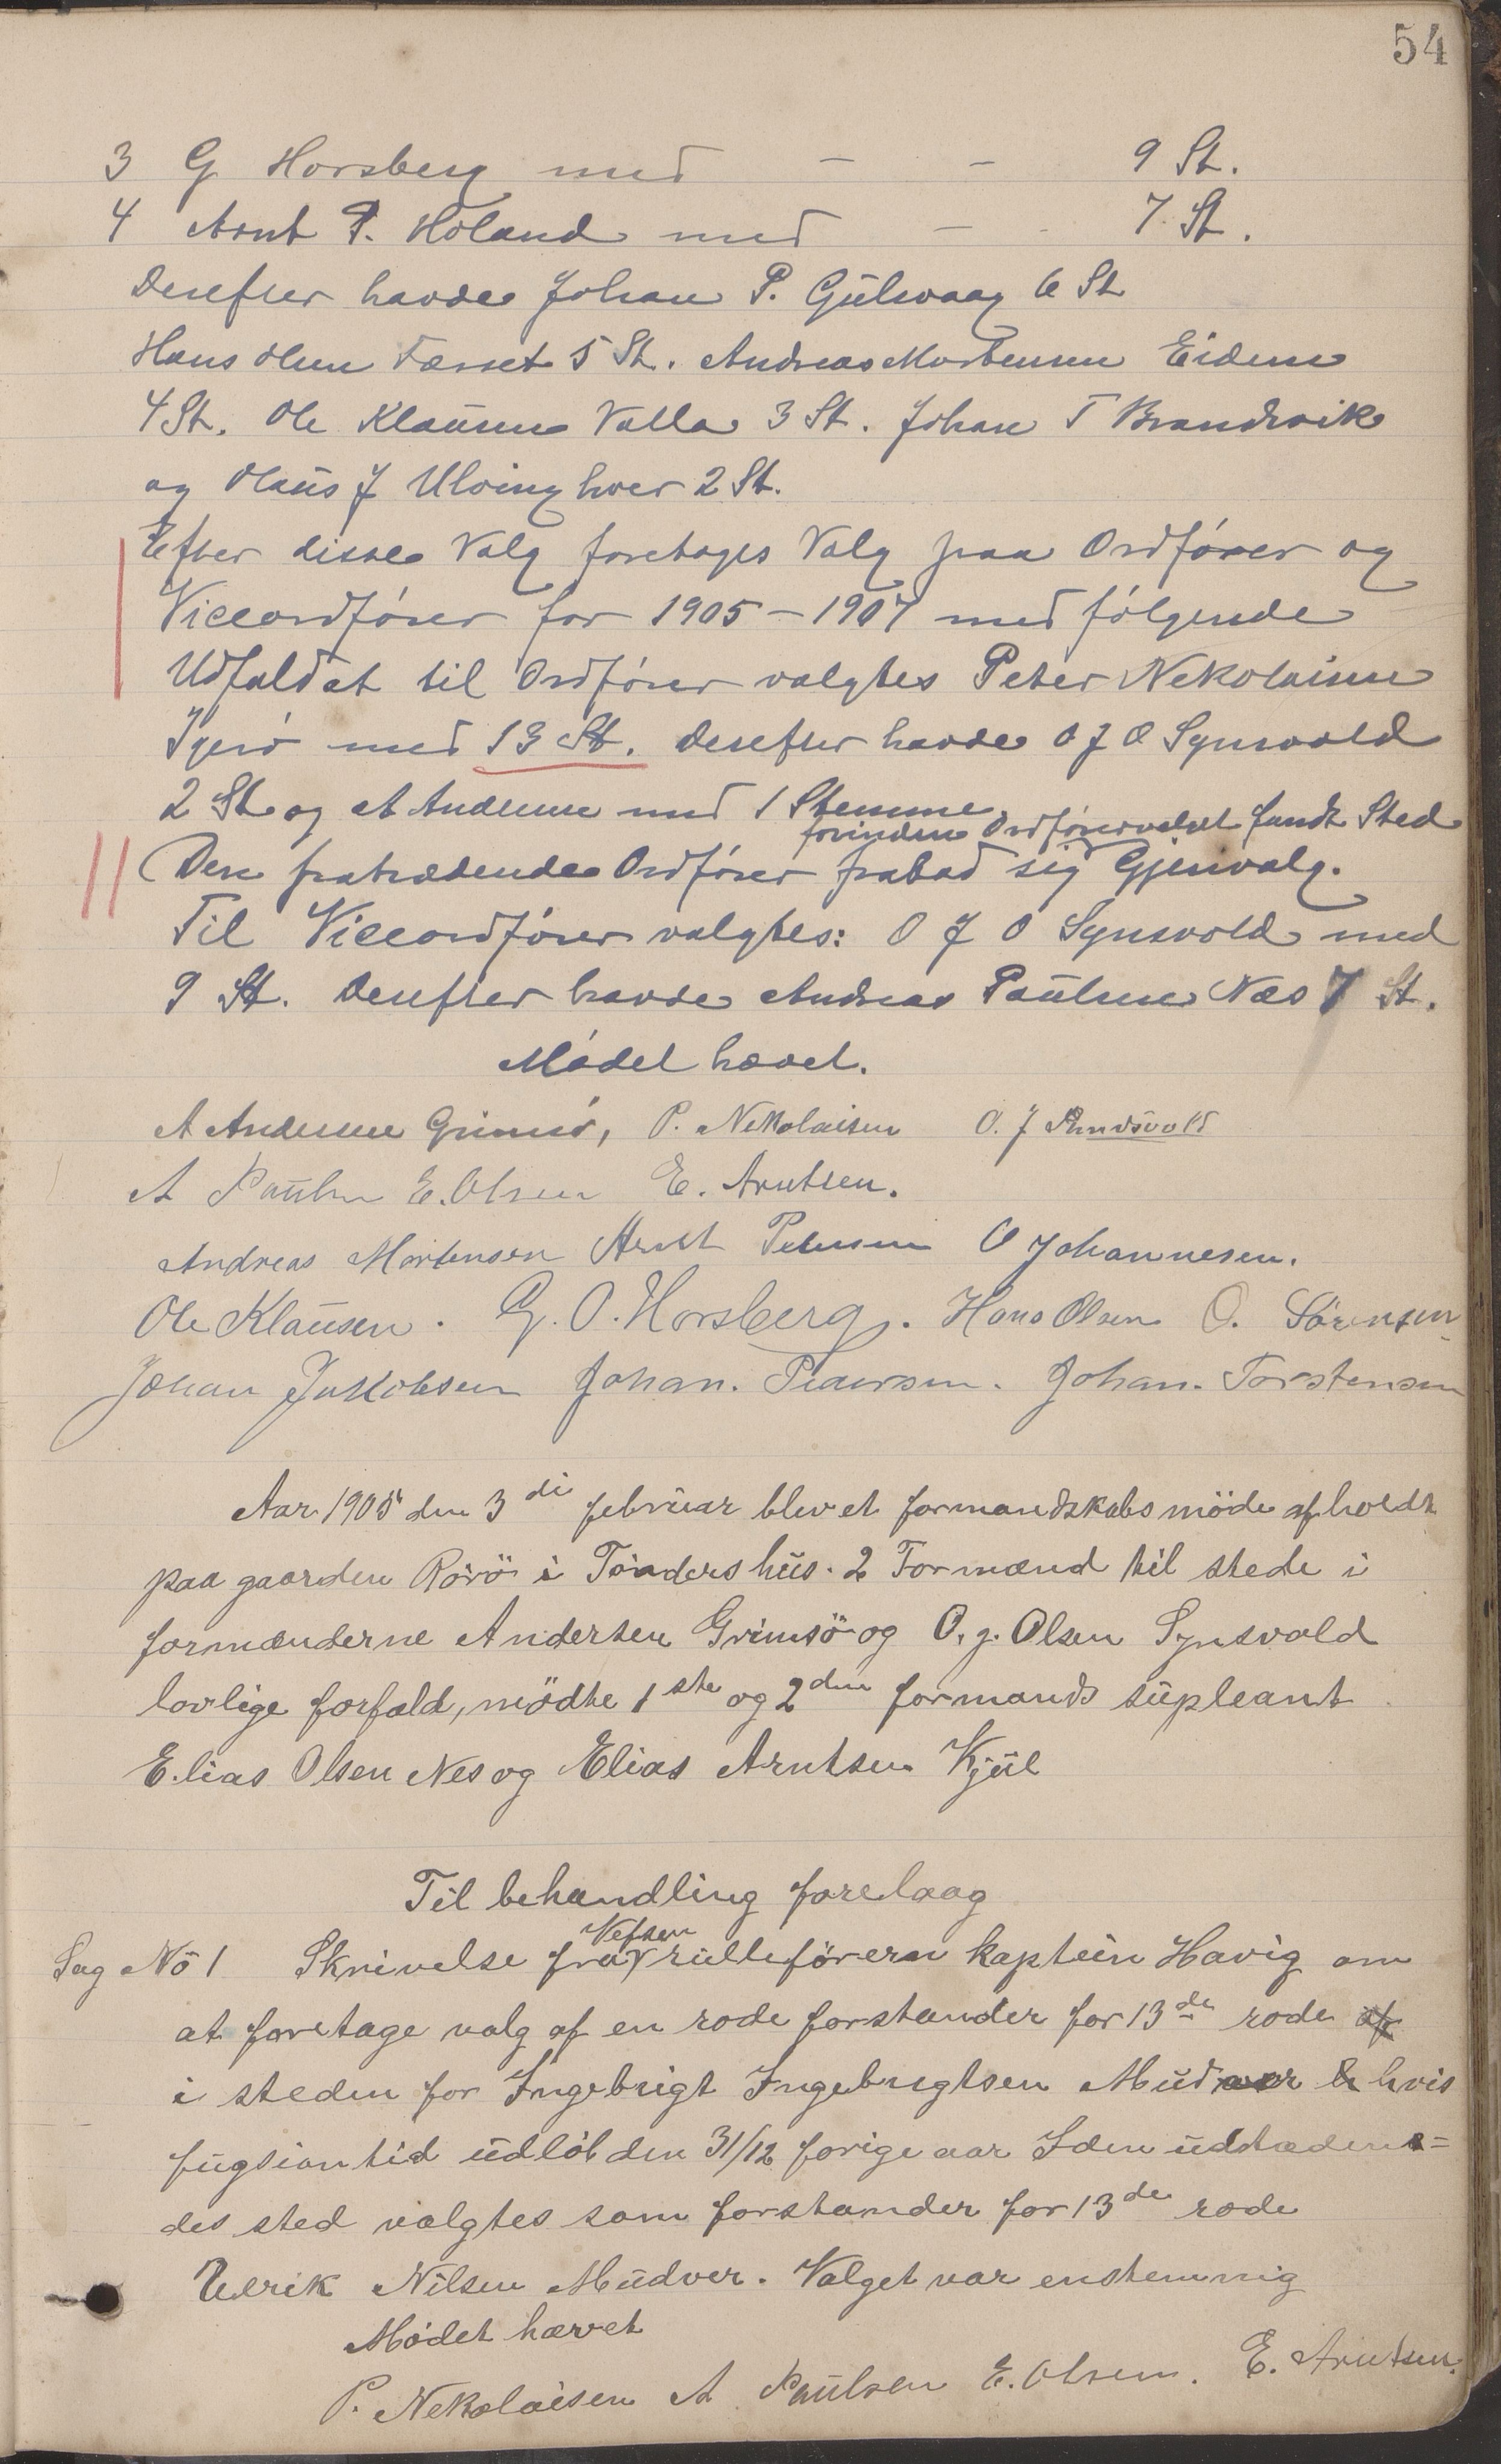 54
3 G Horsberg med - - 9 St.
4 Arnt P. Høland med - - 7 St.
Derefter havde Johan P. Gulvaag 6 St
Hans Olsen Forset 5 St. Andreas Mortensen Eidem
4 St. Ole Klausen Valla 3 St. Johan T Brandsvik
og Olaus J Ulving hver 2 St.
Efter disse Valg foretoges Valg paa Ordfører og
Viceordfører for 1905-1907 med følgende
Udfald at til Ordfører valgtes Peter Nekolaisen
Igerø med 13 St. Derefter havde O J O Synsvold
2 St og A Andersen med 1 Stemme
forinden Ordførervalget fandt Sted
Den fratrædende Ordfører frabad sig Gjenvalg.
Til Viceordfører valgtes: O J O Synsvold med
9 St. Derefter havde Andreas Paulsen Næs 7 St.
Mødet hævet.
A Andersen Grimsø, P. Nekolaisen O. J Synsvold
A Paulsen E. Olsen E. Arntsen.
Andreas Mortensen Arnt Petersen O Johannesen.
Ole Klausen. G. O. Horsberg. Hans Olsen O. Sørensen
Johan Jakobsen Johan. Pedersen. Johan. Torstensen
Aar 1905 den 3di februar blev et formandskabsmöde afholdt
paa gaarden Rörö i Tønders hus. 2 Formænd til stede i
formænderne Andersen Grimsö og O. J. Olsen Synsvold
lovlige forfald, mödte 1ste og 2den formands supleant
Elias Olsen Nes og Elias Arntsen Kjul
Til behandling forelaag
Vefsen
Sag No 1 Skrivelse fra rulleförern kaptein Havig om
at foretage valg af en rode forstander for 13de rode af
i steden for Ingebrigt Ingebrigtsen Mudver hvis
fugsion tid udløb den 31/12 forige aar I den udtrædene=
des sted valgtes som forstander for 13de rode
Ulrik Nilsen Mudver. Valget var enstemmig
Mödet hævet
P. Nekolaisen A Paulsen E. Olsen. E. Arntsen.